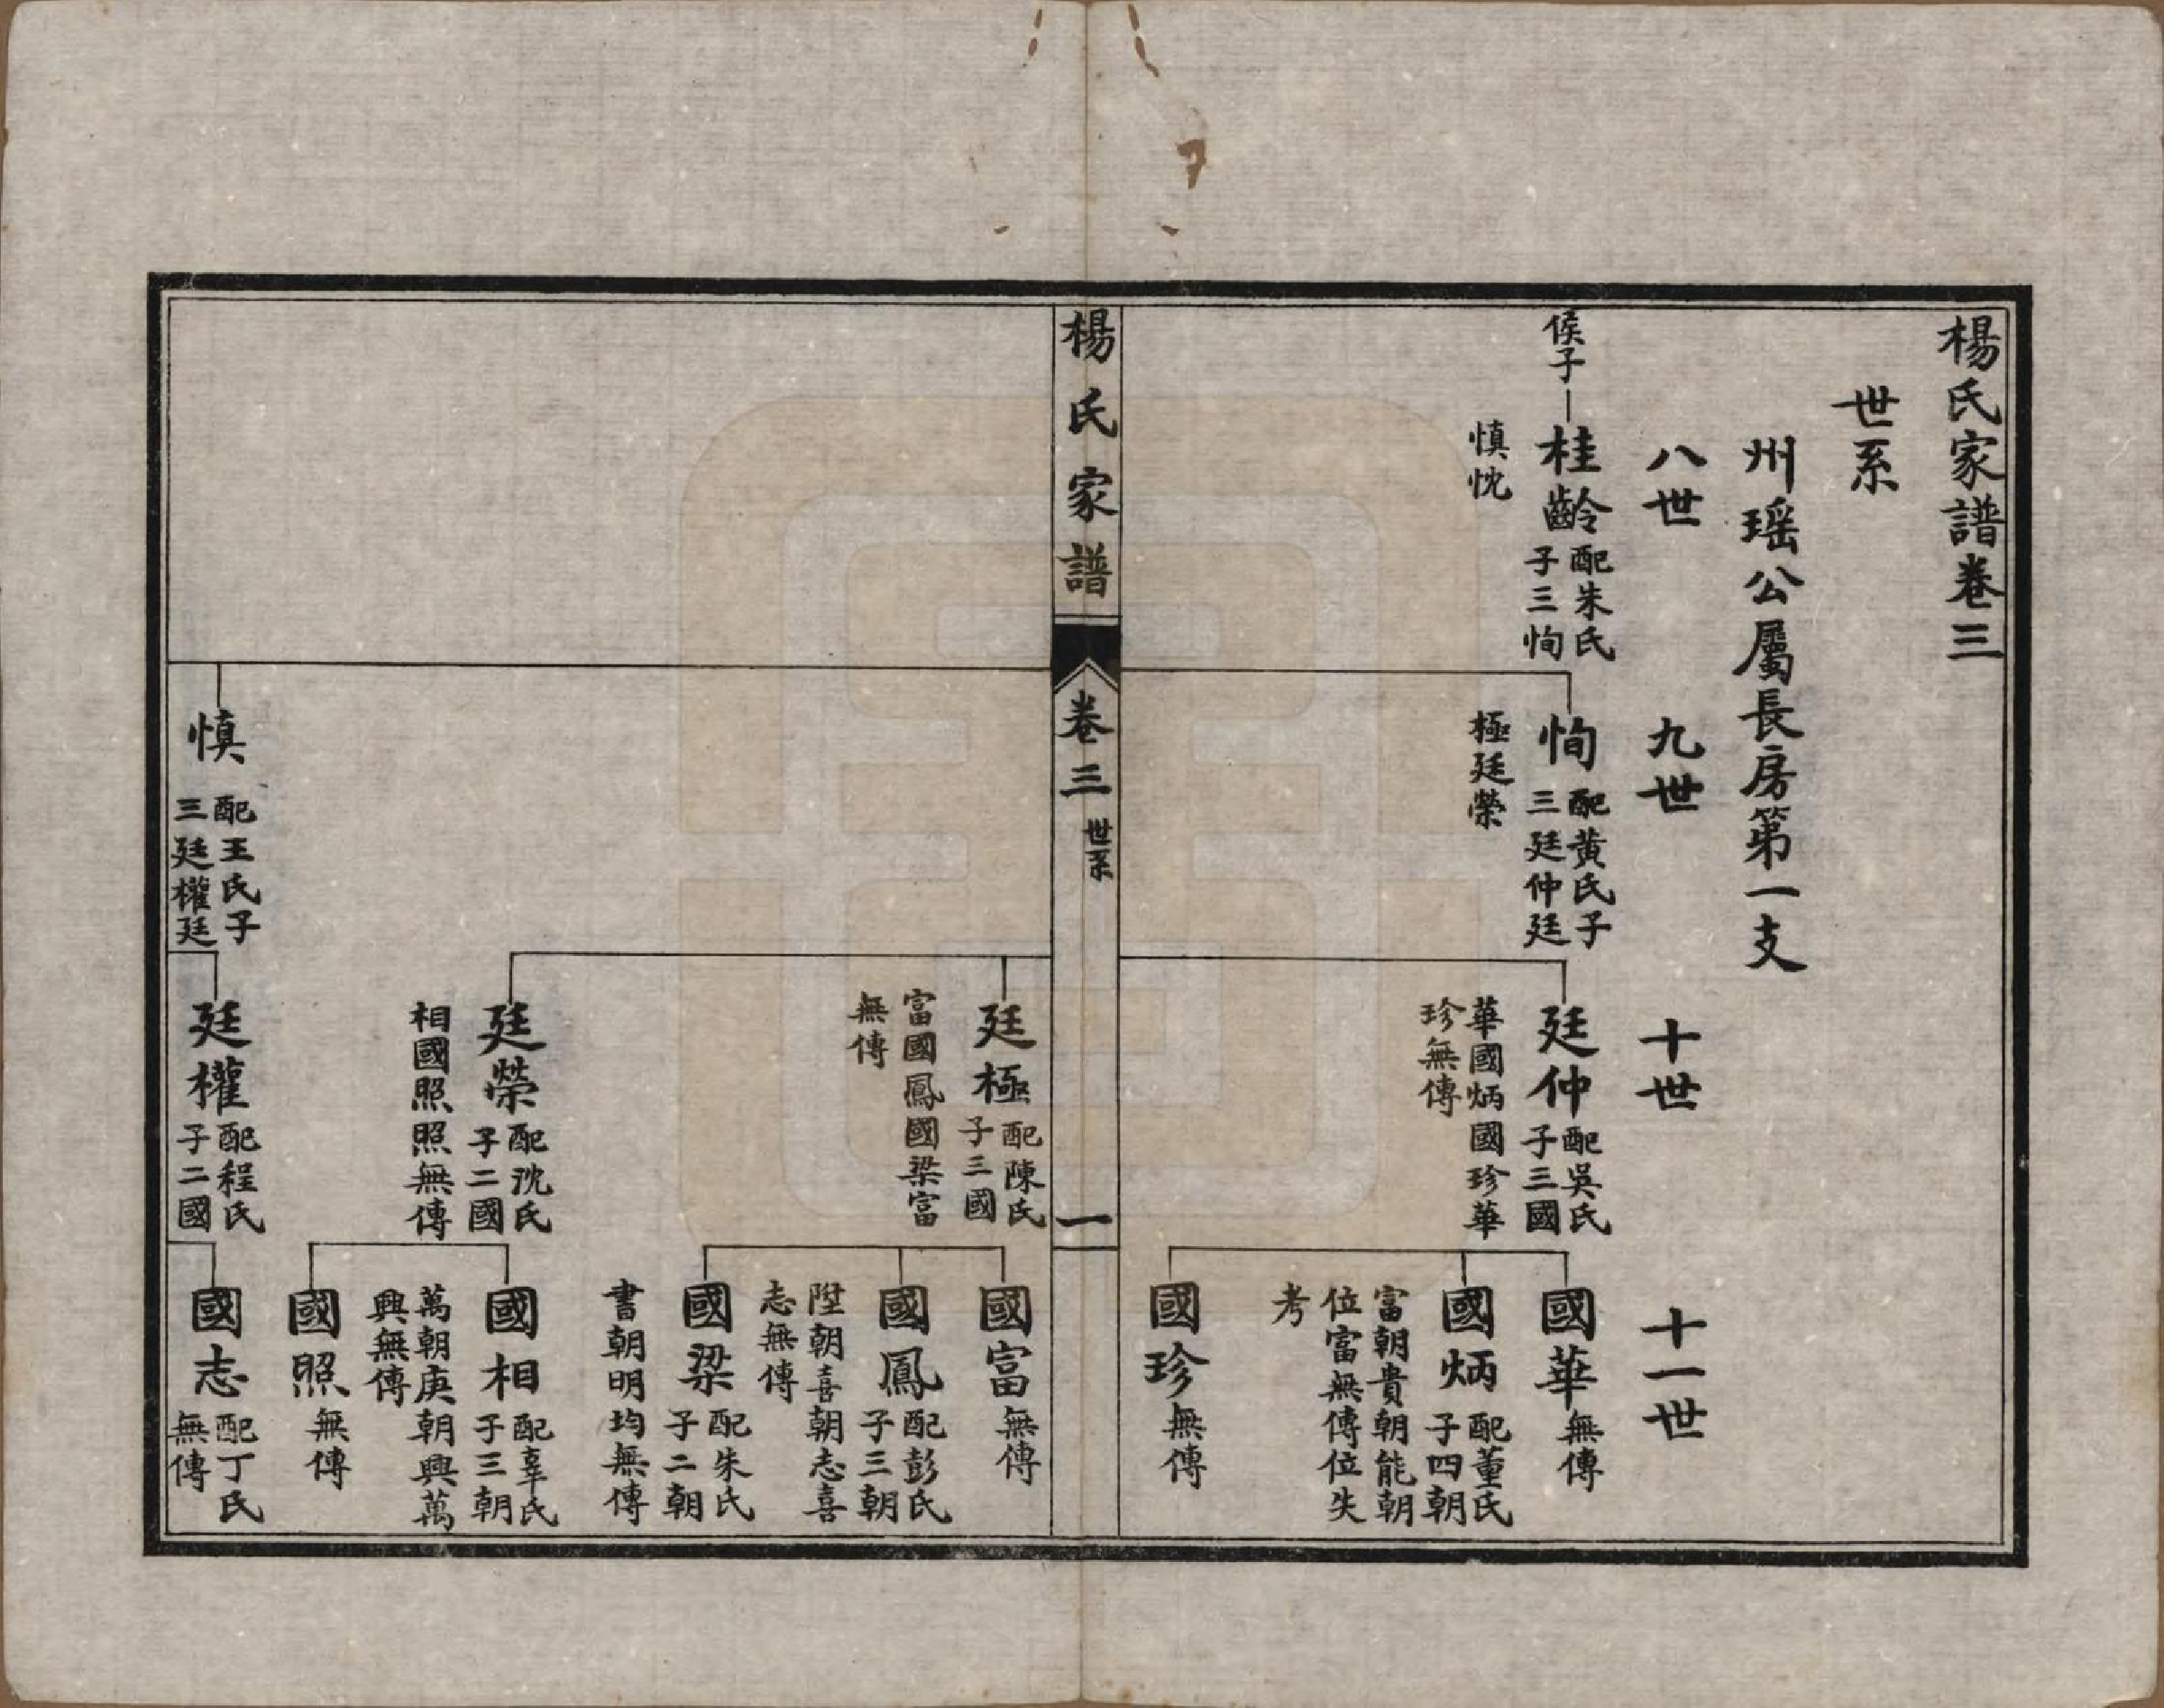 楊氏家譜卷三
世系
州瑶公屬長房第一支
八世
九世
十世
十一世
侯子
桂齡
配朱氏
子三恂
慎忱
恂
配黄氏子
三廷仲廷
極廷榮
廷仲
配吳氏
子三國
華國炳國珍華
珍無傳
國華
無傳
國炳
配董氏
子四朝
富朝貴朝能朝
位富無傳位失
考
國珍
無傳
楊氏家譜
卷三
世系
一
廷極
配陳氏
子三國
富國鳳國梁富
無傳
國富
無傳
國鳳
配彭氏
子三朝
陞朝喜朝志喜
志無傳
國梁
配朱氏
子二朝
書朝明均無傳
廷榮
配沈氏
子二國
相國照照無傳
國相
配辜氏
子三朝
萬朝庚朝興萬
興無傳
國照
無傳
慎
配王氏子
三廷權廷
廷權
配程氏
子二國
國志
配丁氏
無傳